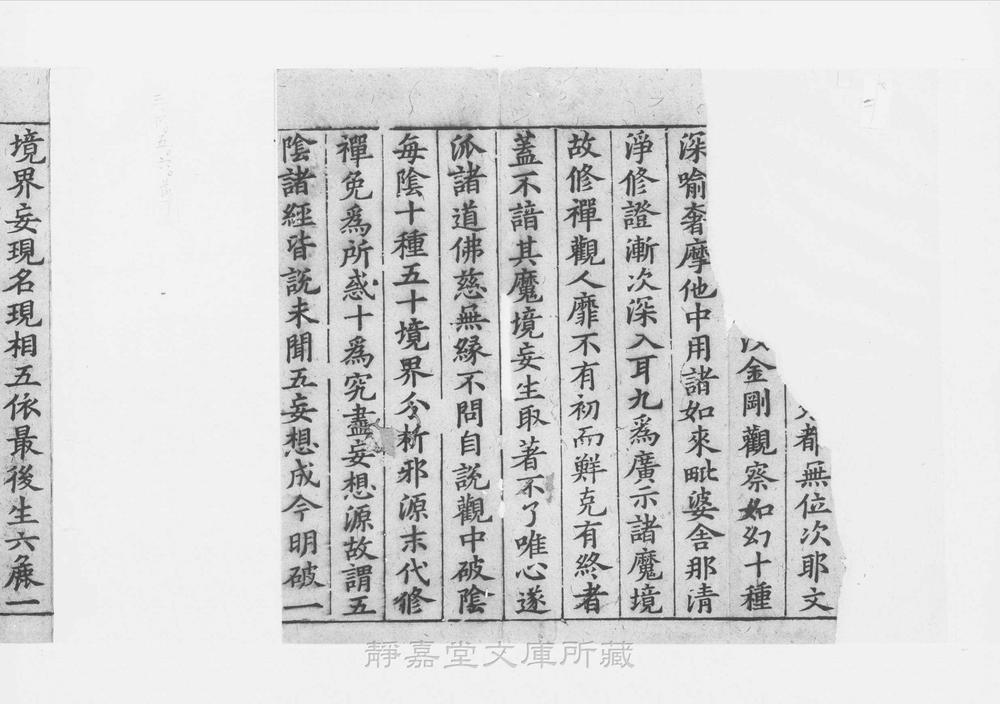 都無位次耶文
金剛觀察如幻十種
深喻奢摩他中用諸如來毗婆舍那清
淨修證漸次深入耳九為廣示諸魔境
故修禪觀人靡不有初而鮮克有終者
蓋不諳其魔境妄生取著不了唯心遂
派諸道佛慈無緣不問自說觀中破陰
每陰十種五十境界分析邪源末代修
禪免爲所惑十爲究盡妄想源故謂五
陰諸經皆說未聞五妄想成今明破一
境界妄現名現相五依最後生六麁一
靜嘉堂文庫所藏